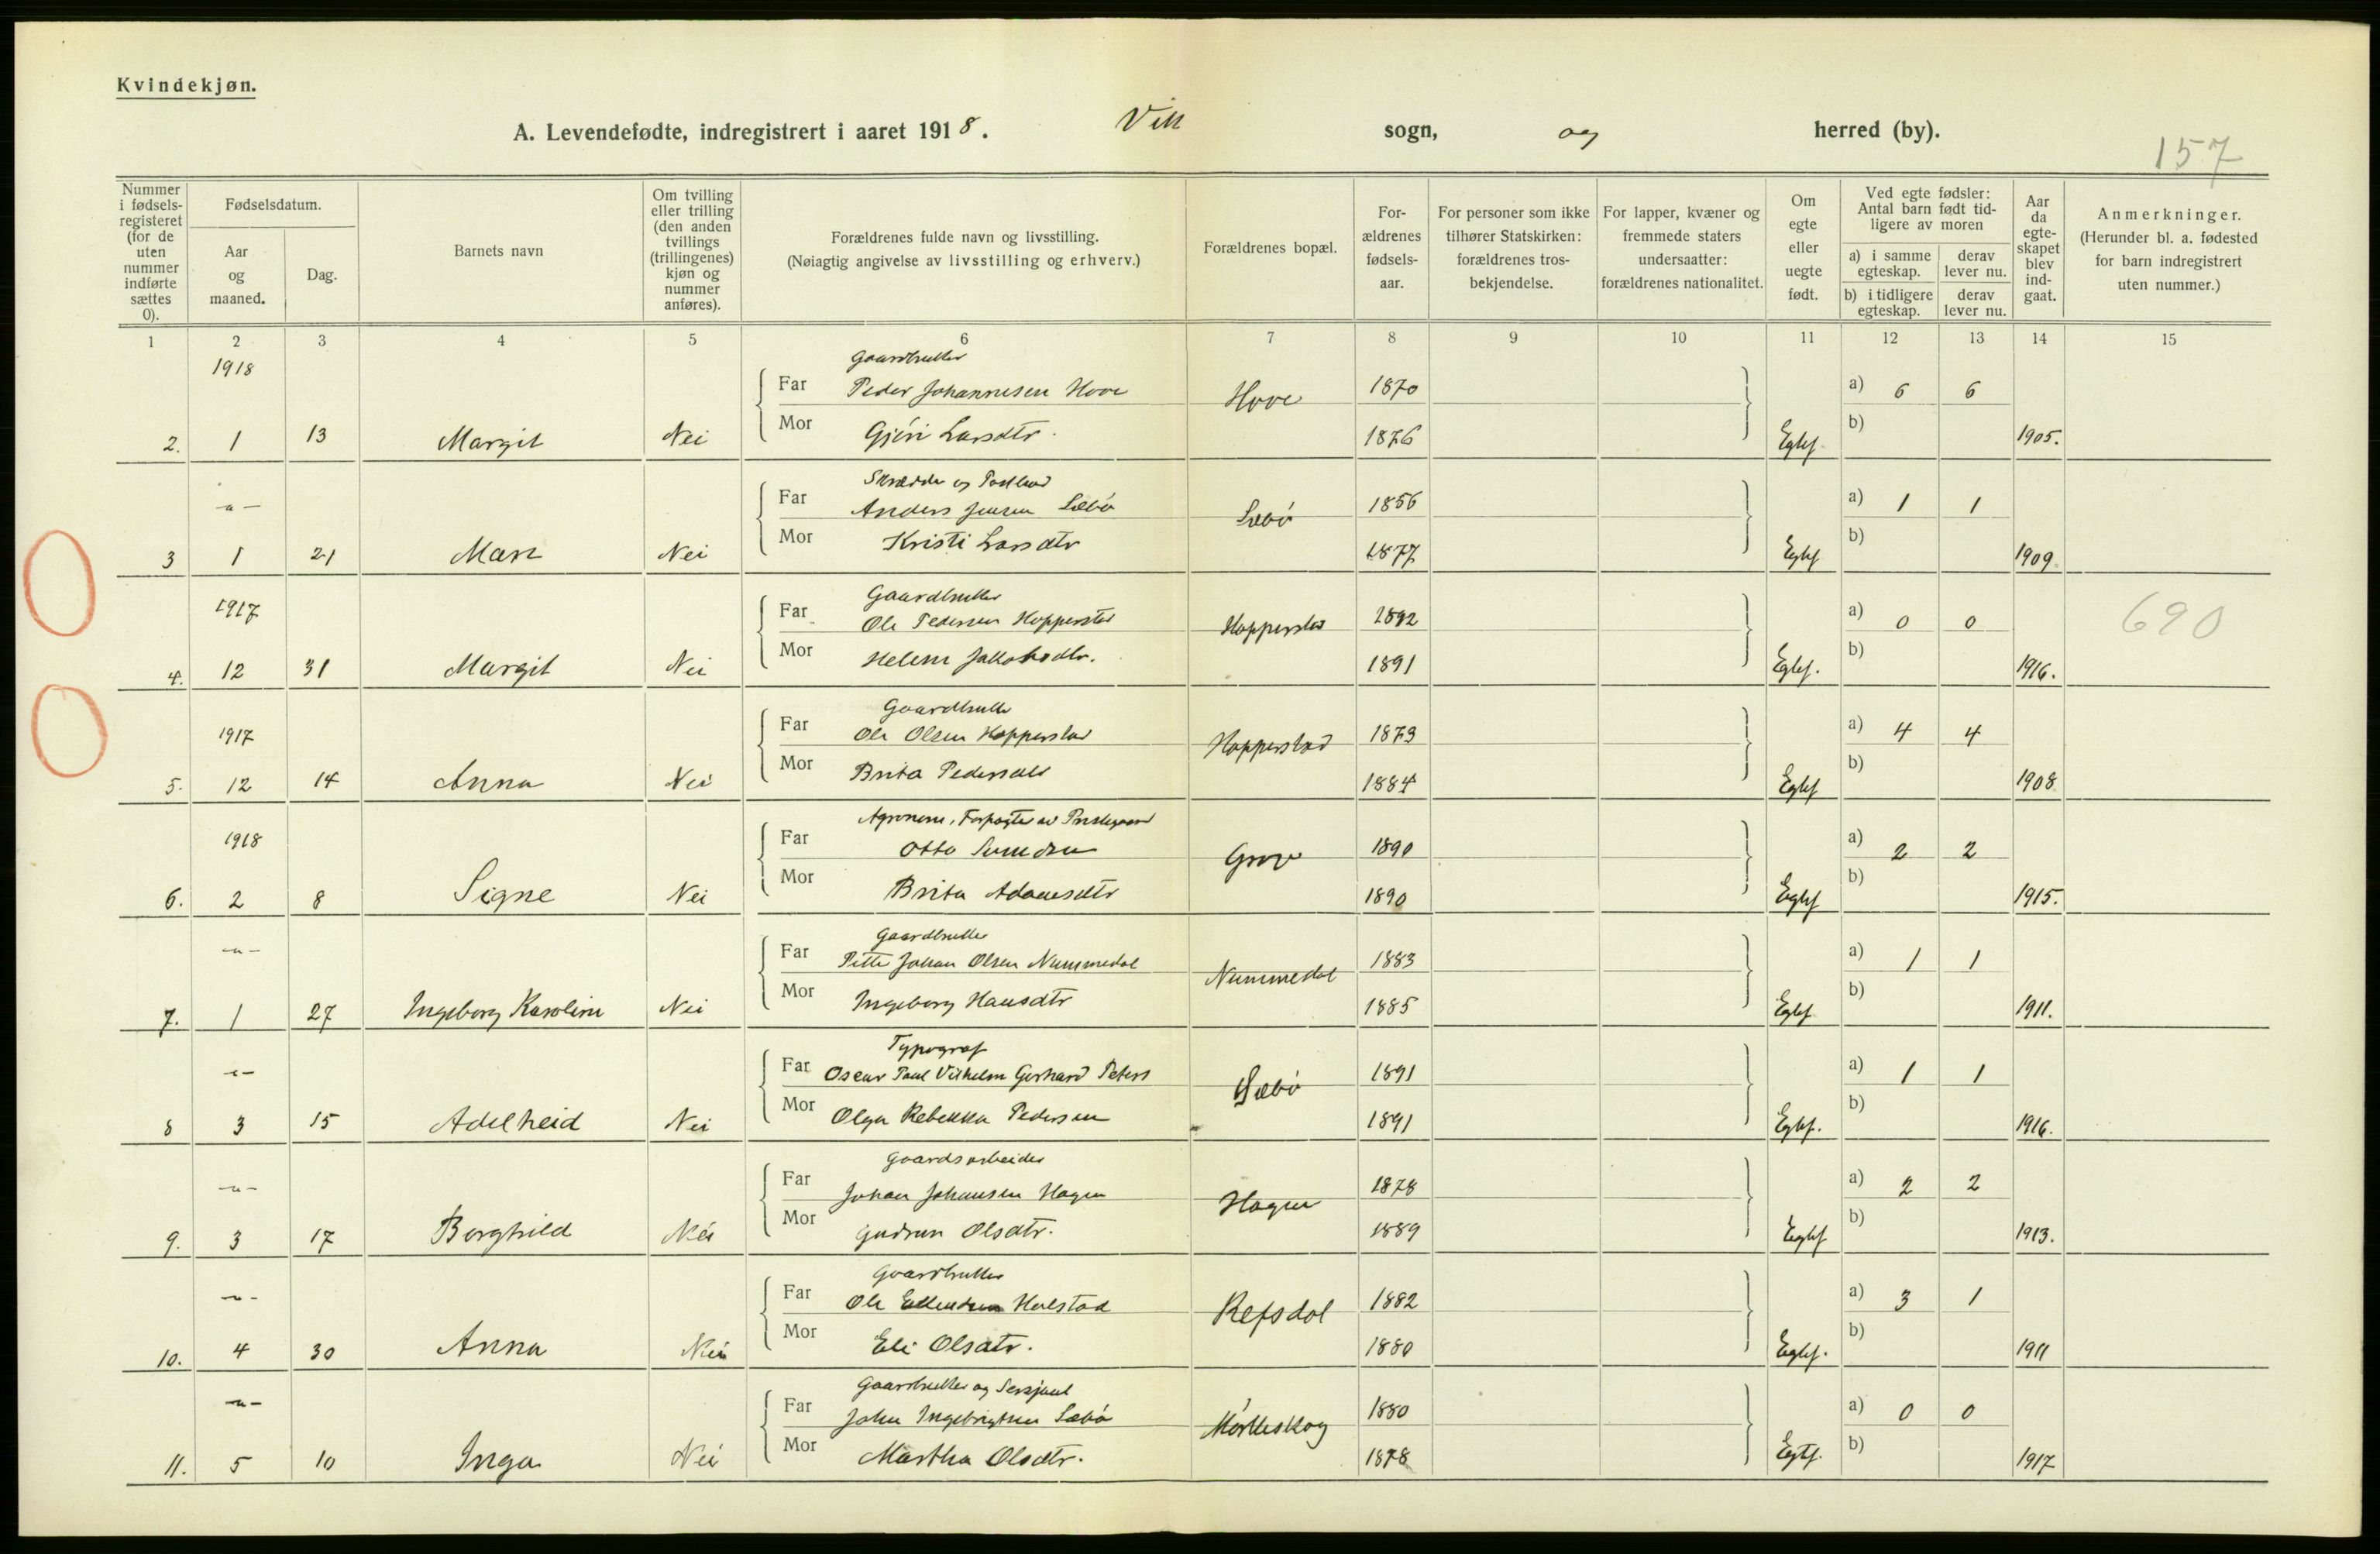 Kvindekjøn.
A. Levendefødte, indregistrert i aaret 1918. Vik sogn, og herred (by).
157
Nummer i fødsels-registeret (for de uten nummer indførte sættes 0).
Fødselsdatum.
Aar og maaned.
Dag.
Barnets navn
Om tvilling eller trilling (den anden tvillings (trillingenes) kjøn og nummer anføres).
Forældrenes fulde navn og livsstilling.
(Nøiagtig angivelse av livsstilling og erhverv.)
Forældrenes bopæl.
For-ældrenes fødsels-aar.
For personer som ikke tilhører Statskirken: forældrenes tros-bekjendelse.
For lapper, kvæner og fremmede staters undersaatter: forældrenes nationalitet.
Om egte eller uegte født.
Ved egte fødsler: Antal barn født tid-ligere av moren
a) i samme egteskap.
derav lever nu.
b) i tidligere egteskap.
derav lever nu.
Aar da egte-skapet blev ind-gaat.
Anmerkninger.
(Herunder bl. a. fødested for barn indregistrert uten nummer.)
1 2 3 4 5 6 7 8 9 10 11 12 13 14 15
1918 Gaardbruker
Far Peder Johannesen Hove Hove 1870 a) 6 6
2. 1 13 Margit Nei Mor Gjøri Larsdtr. 1876 Egtef. b) 1905.
-"- Skrædder og Postbud
Far Anders Jensen Sæbø Sæbø 1856 a) 1 1
3 1 21 Nei Mor Kristi Larsdtr 1877 Egtef b) 1909.
1917 Gaardbruker
Far Ole Pedersen Hopperstad Hopperstad 1892 a) 0 0 690
4. 12 31 Margit Nei Mor Helene Jakobsdtr. 1891 Egtef. b) 1916.
1917 Gaardbruker
Far Ole Olsen Hopperstad Hopperstad 1873 a) 4 4
5. 12 14 Anna Nei Mor Brita Pedersdtr 1884 Egtef b) 1908
1918 Agronom, Forpagter av Prestegaard
Far Otto 1890 a) 2 2
6. 2 8 Signe Nei Mor Brita Adamsdtr 1890 Egtef b) 1915.
-"- Gaardbruker
Far Petter Johan Olsen Nummedal Nummedal 1883 a) 1 1
7. 1 27 Ingeborg Karoline Nei Mor Ingeborg Hansdtr 1885 Egtef b) 1911.
-"- Typograf
Far Oscar Paul Vilhelm Gerhard Peters Sæbø 1891 a) 1 1
8 3 15 Adelheid Nei Mor Olga Rebekka Pedersen 1891 Egtef. b) 1916.
-"- Gaardsarbeider
Far Johan Johansen Hagen Hagen 1878 a) 2 2
9. 3 17 Borghild Nei Mor Gudrun Olsdtr. 1889 Egtef b) 1913.
-"- Gaardbruker
Far Ole Ellendsen Halstad Refsdal 1882 a) 3 1
10. 4 30 Anna Nei Mor Eli Olsdtr. 1880 Egtef. b) 1911
-"- Gaardbruker og Sersjant
Far John Ingebrigtsen Sæbø Mørkeskog 1880 a) 0 0
11. 5 10 Inga Nei Mor Martha Olsdtr. 1878 Egtf. b) 1917